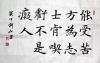 能受苦
方為志
士肯喫
虧不是
癡人